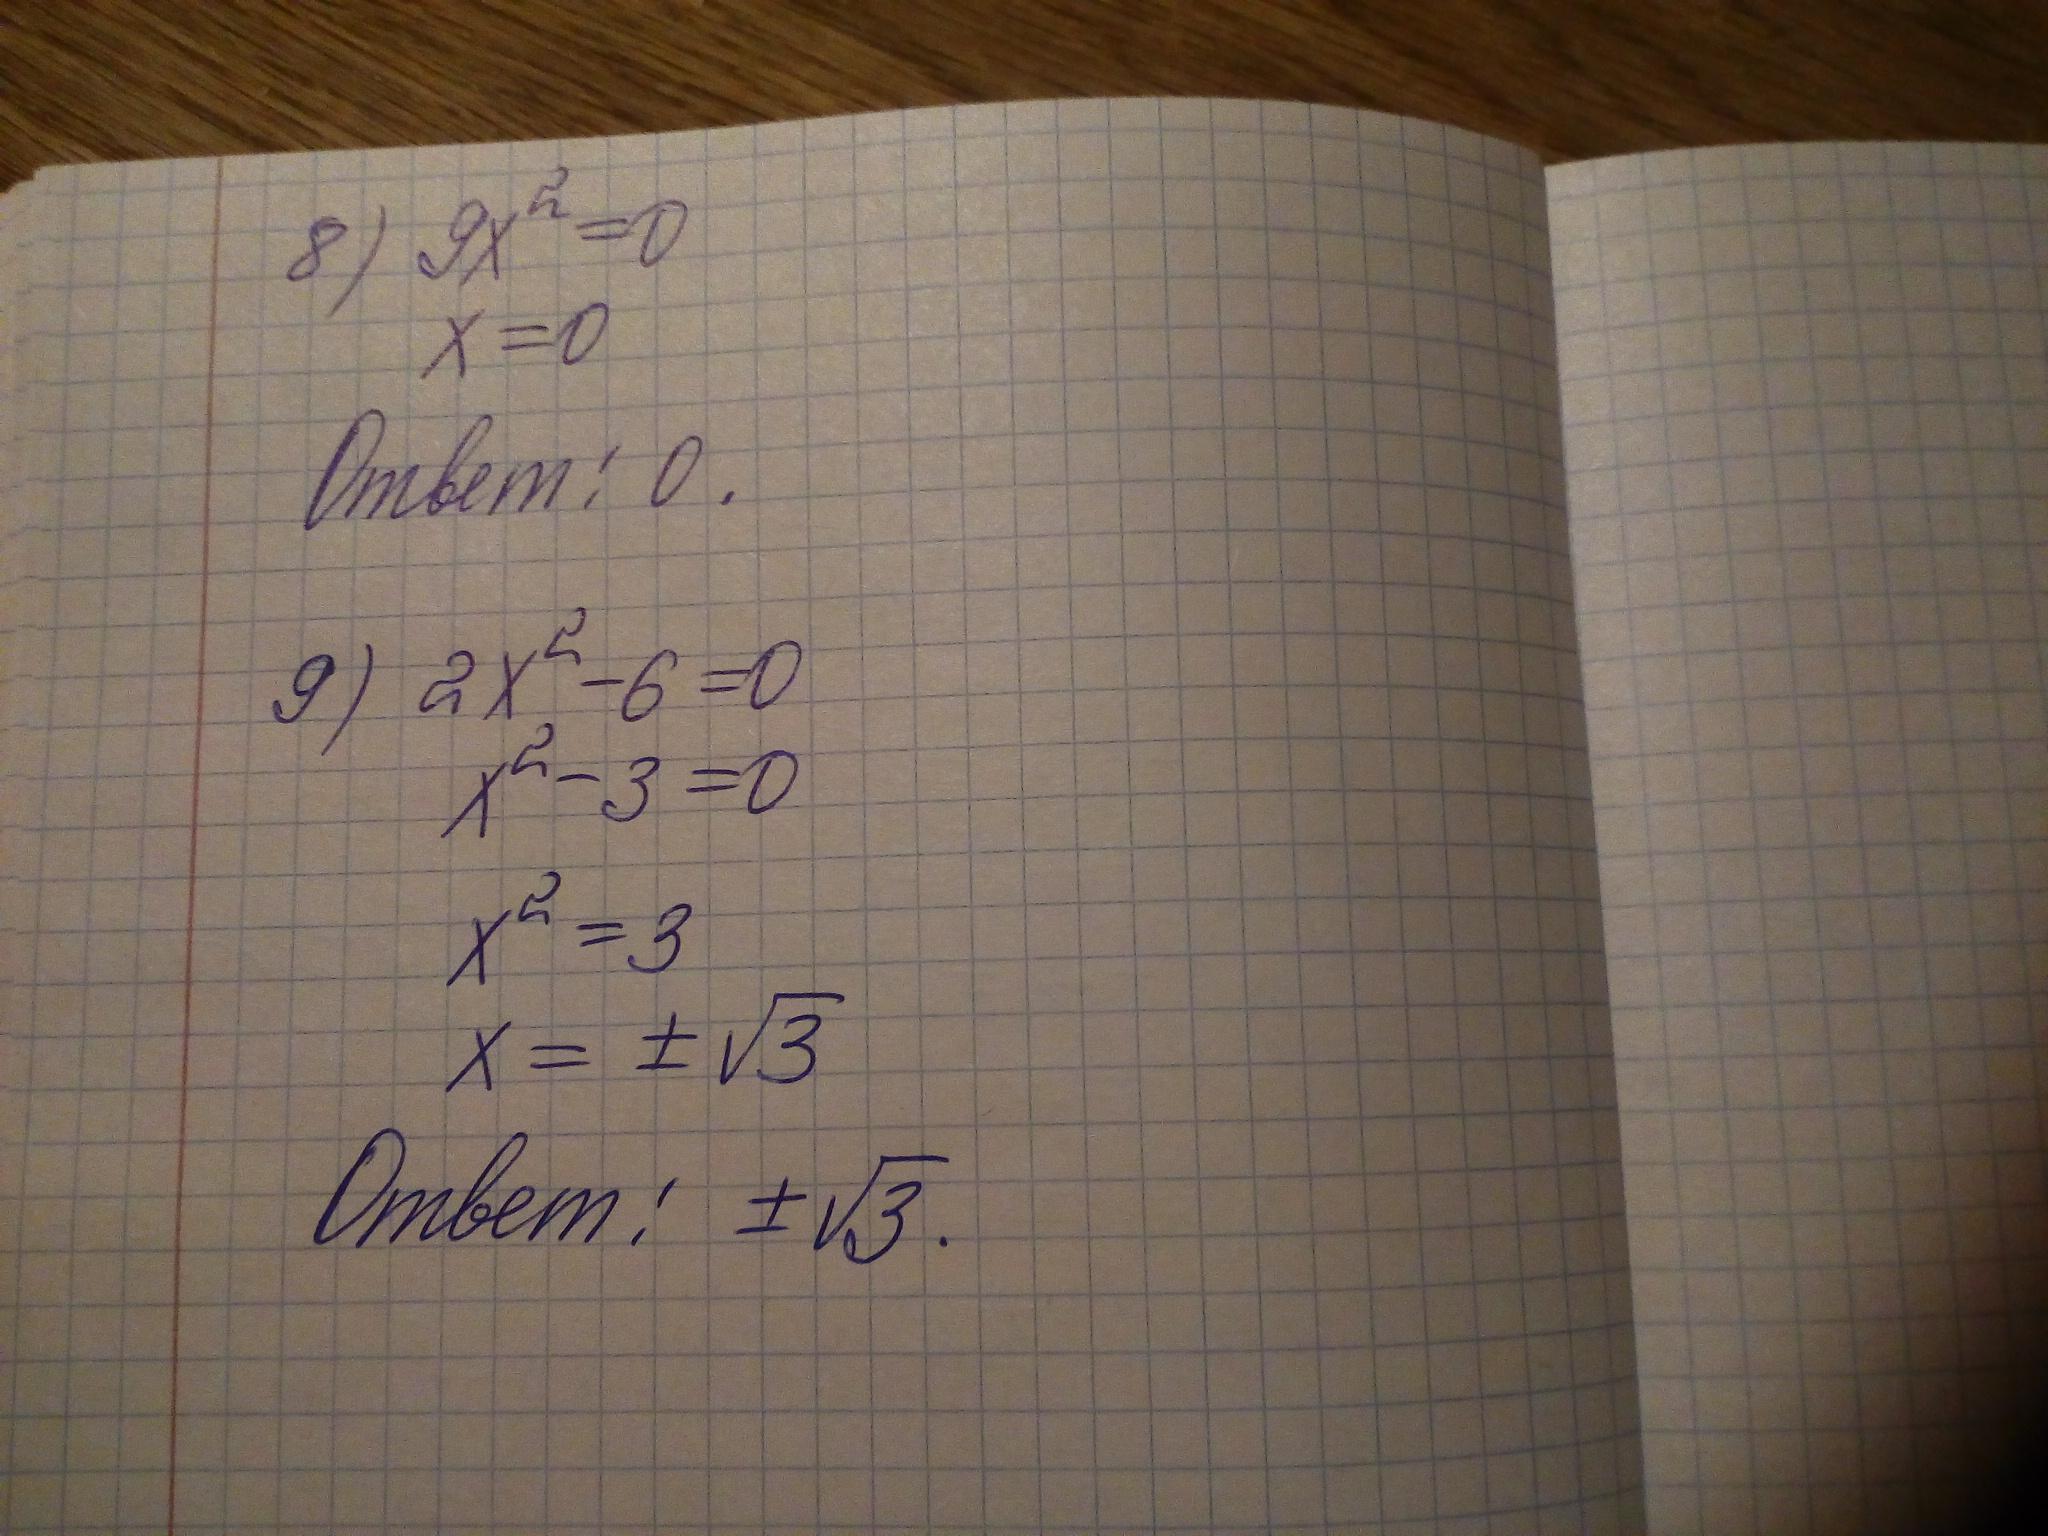 8) 9x² = 0
x = 0
Ответ: 0.
9) 2x² - 6 = 0
x² - 3 = 0
x² = 3
x = ± √3
Ответ: ± √3.